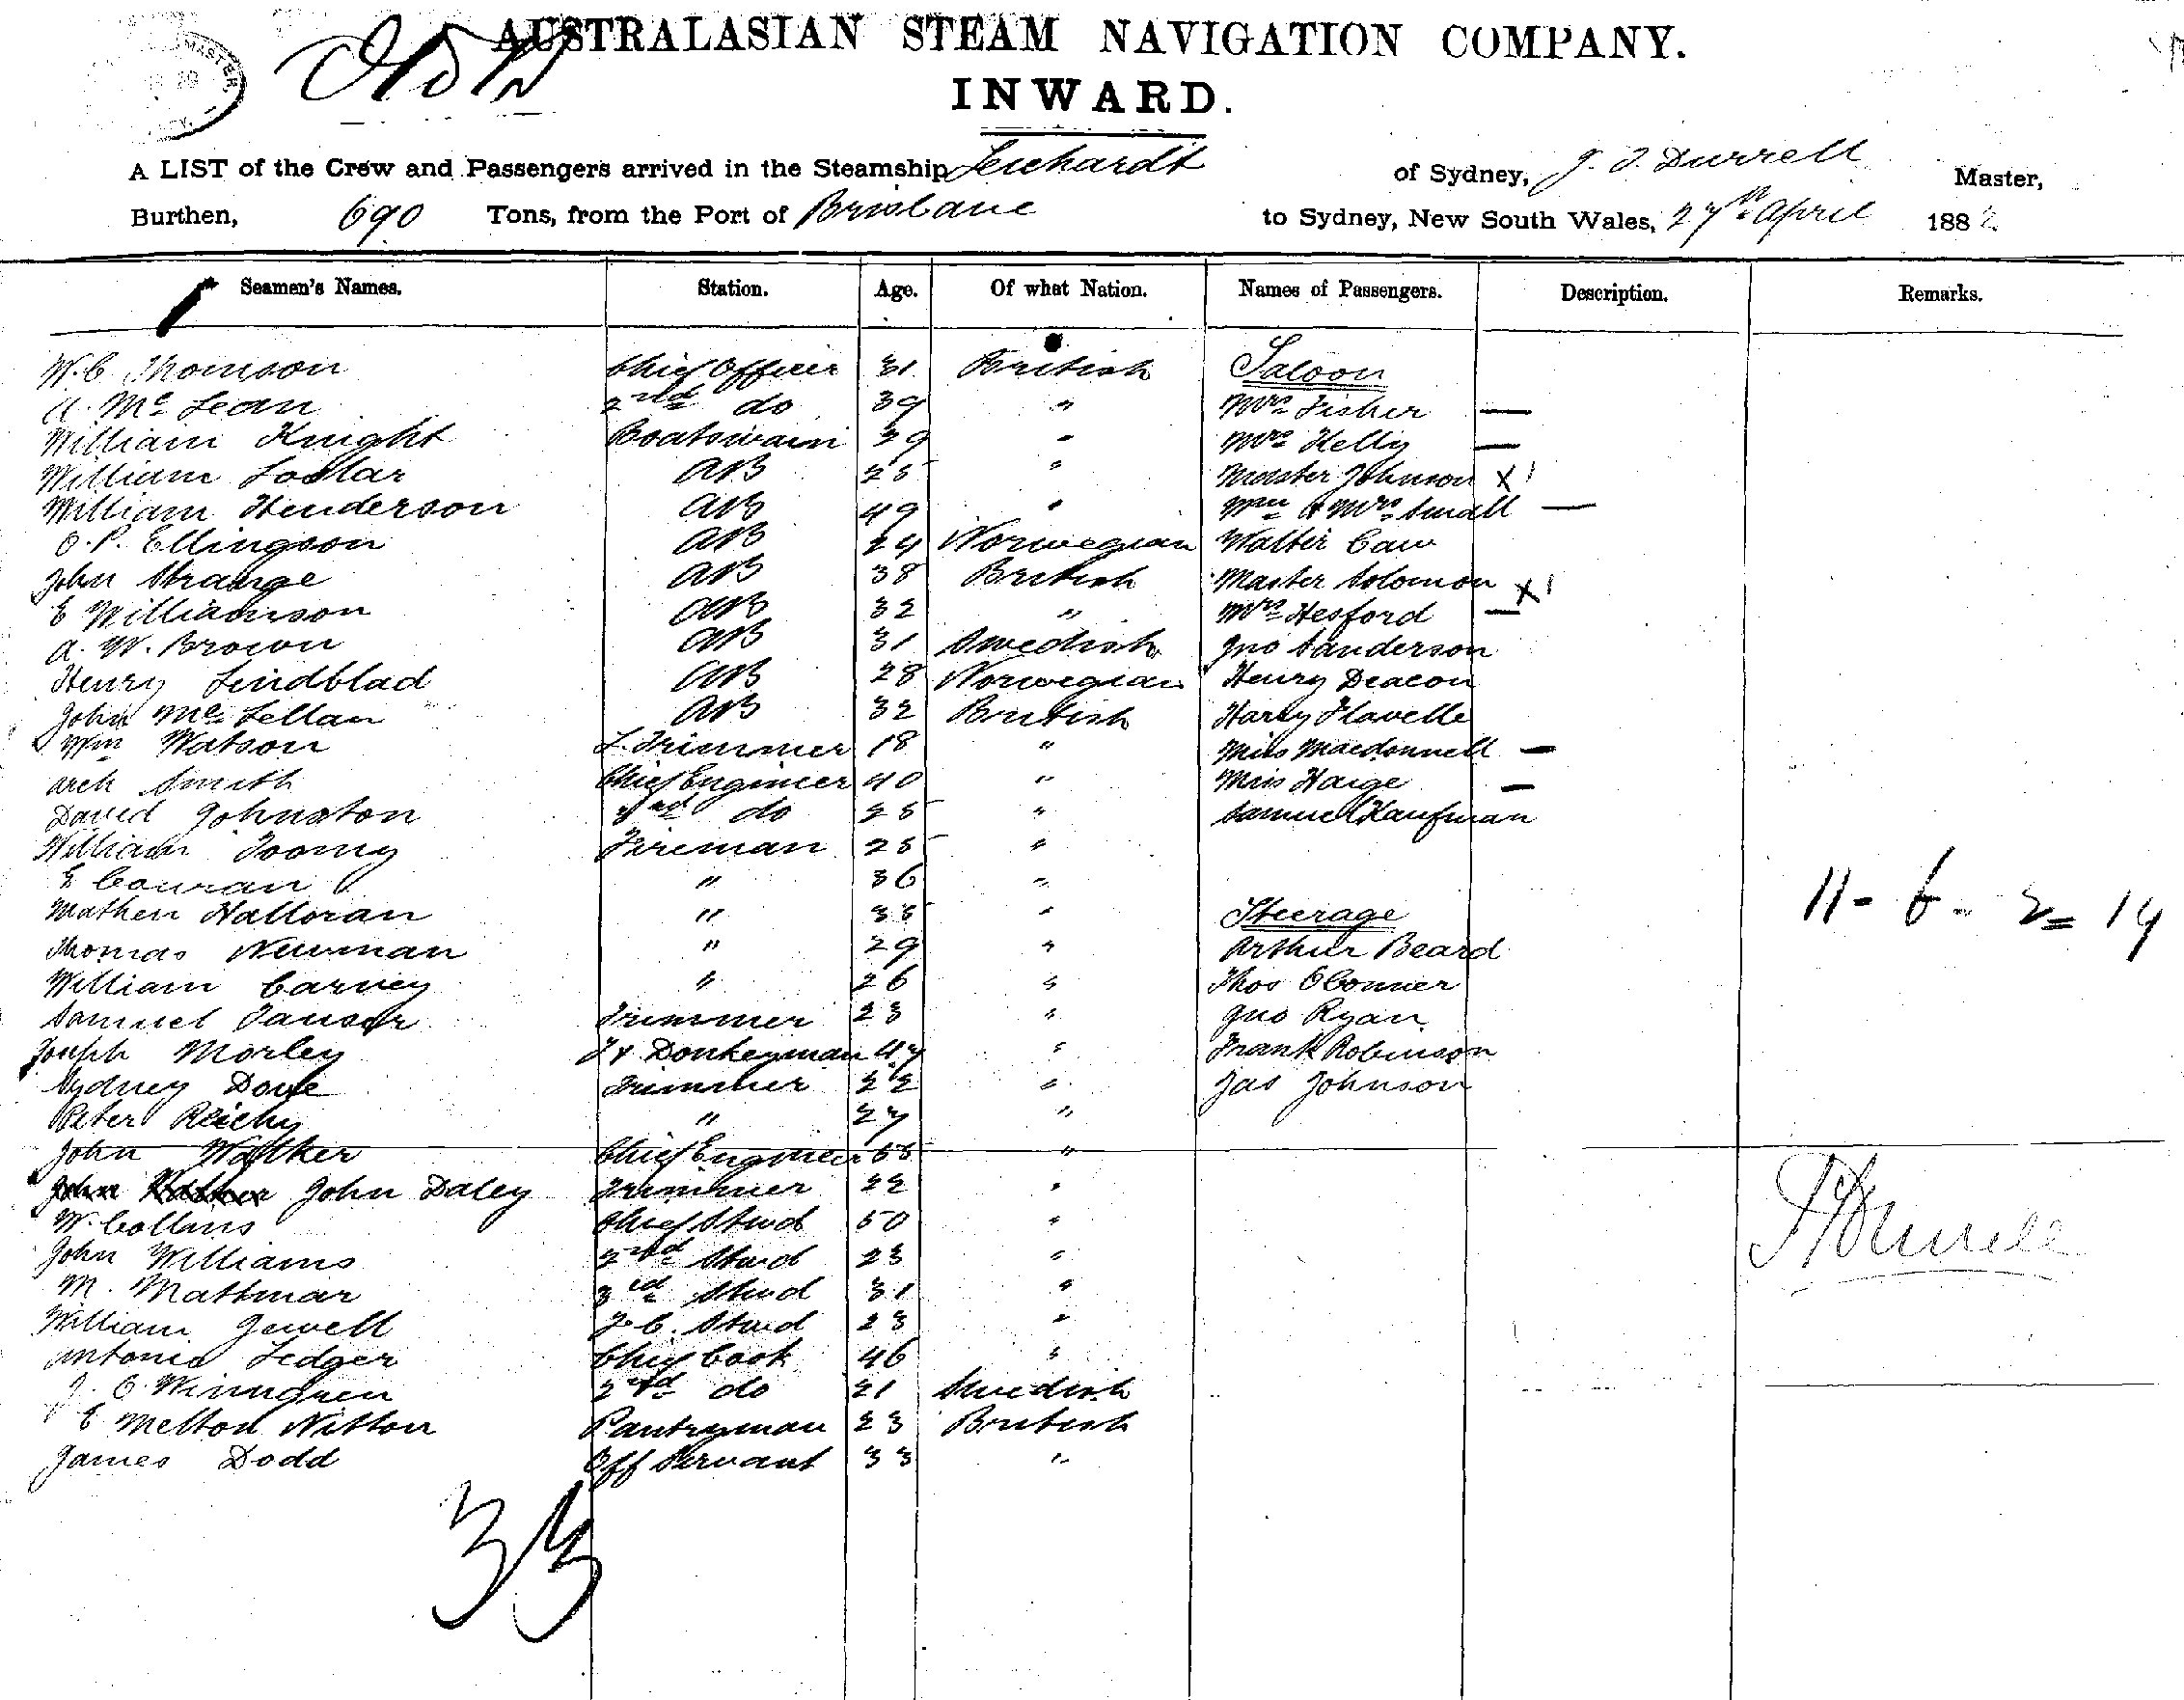 AUSTRALASIAN STEAM NAVIGATION COMPANY.
INWARD.
A LIST of the Crew and Passengers arrived in the Steamship Leichardt of Sydney, J. T. Durrell Master,
Burthen, 690 Tons, from the Port of Brisbane to Sydney, New South Wales, 27th April 1882
Seamen's Names. Station. Age. Of what Nation. Names of Passengers. Description. Remarks.
W. C. Thomson Chief Officer 31 British Saloon
A. Mc Lean 2nd do 39 " Mrs Fisher —
William Knight Boatswain 29 " Mrs Kelly —
William AB 25 " Master Johnson X 1
William Henderson AB 49 " Mr & Mrs Small —
O. P. Ellingson AB 24 Norwegian Walter Caw
John Strange AB 38 British Master Solomon X 1
E Williamson AB 32 " Mrs Hesford —
A. W. Brown AB 31 Swedish Jno Sanderson
Henry Lindblad AB 28 Norwegian Henry Deacon
John Mc Lellan AB 32 British Harry Flavelle
Wm Watson L. Trimmer 18 " Miss Macdonnell —
Arch Smith Chief Engineer 40 " Miss Haige —
David Johnston do 25 " Samuel Kaufman
William Toomy Fireman 25 "
E Couran " 36 "
Mathew Halloran " 35 " Steerage 11 - 6 - 2 = 19
Thomas Newman " 29 " Arthur Beard
William Carney " 26 " Thos OConner
Samuel Trimmer 23 " Jno Ryan
Joseph Morley Donkeyman 47 " Frank Robinson
Sydney Dove Trimmer 22 " Jas Johnson
Peter Reichy " 27 "
John Walker Chief Engineer 55 "
John Daley Trimmer 22 "
W. Collins Chief Stwd 50 "
John Williams 2nd Stwd 23 "
M. Mattmar 3rd Stwd 31 "
William Jewell F. C. Stwd 23 "
Antonio Ledger Chief Cook 46 "
J. O. Winngren 2nd do 21 Swedish
E Melton Nitton Pantryman 23 British
James Dodd Off Servant 33 "
33